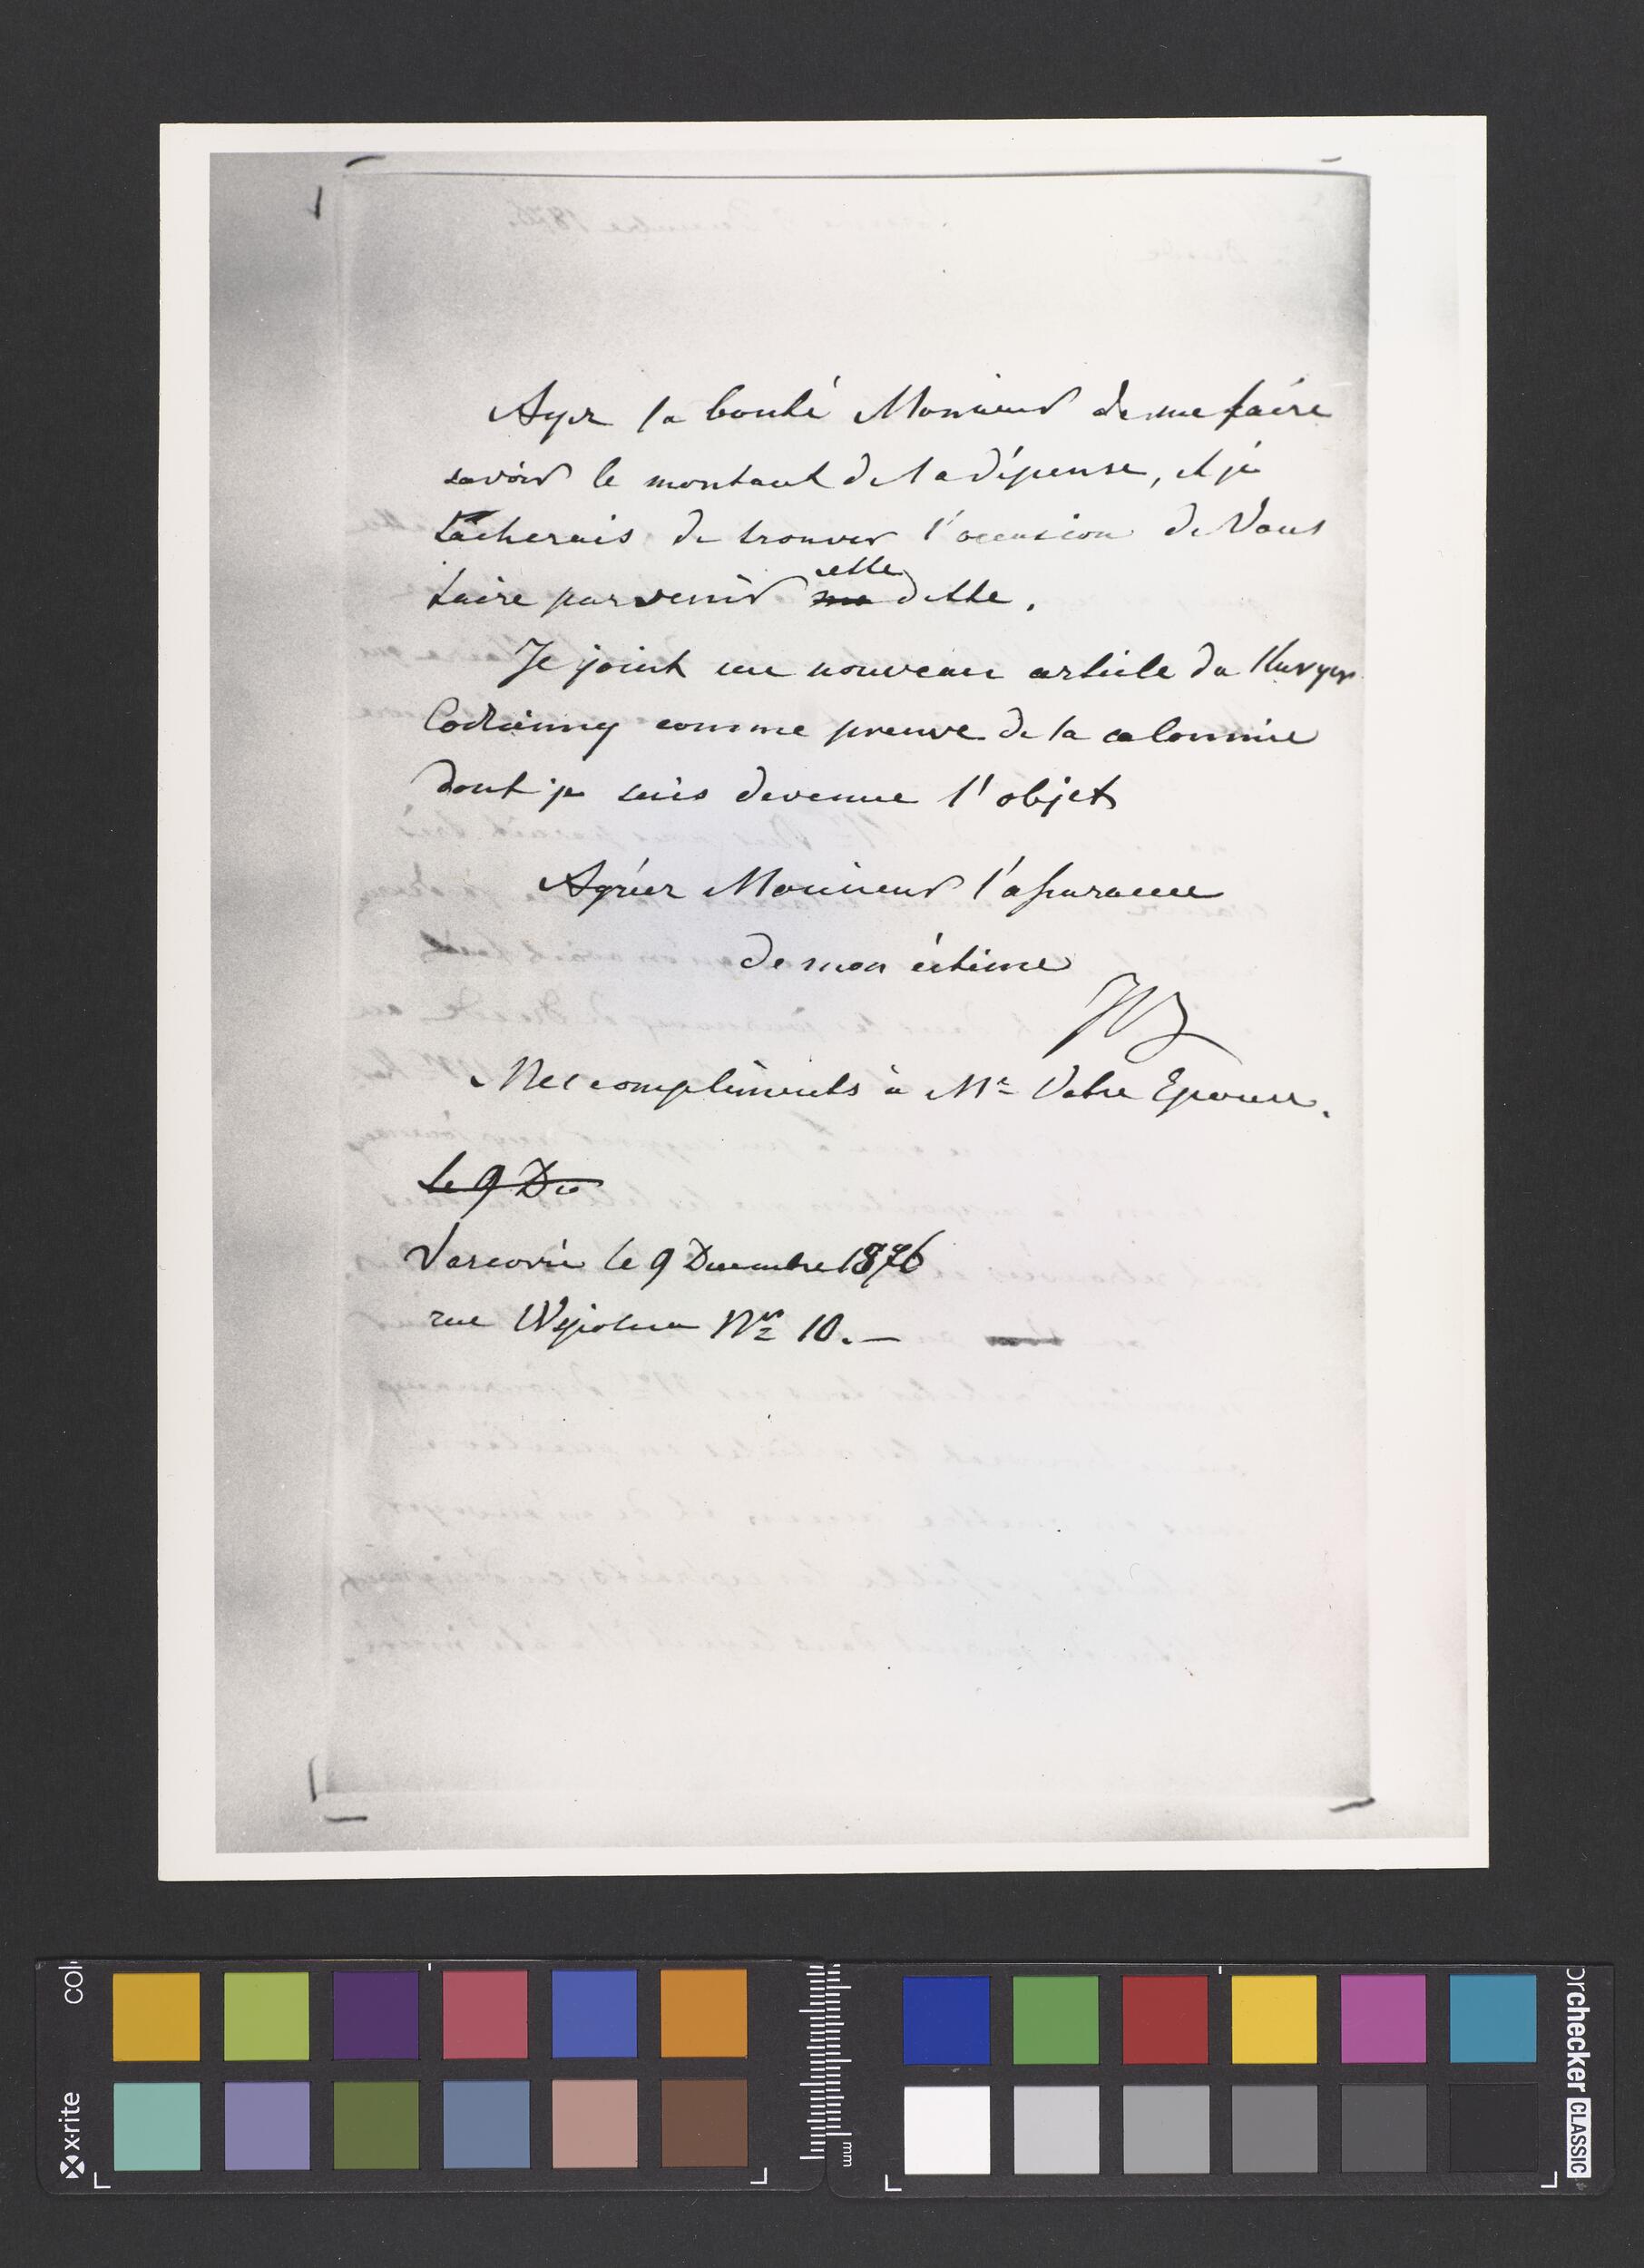 Ayez la bonté Monsieur de me faire
savoir le montant de la dépense, et je
tâcherais de trouver l'occasion de Vous
faire parvenir ma cette dette.
Je joint un nouveau article du Kuryer
Codzienny comme preuve de la calomnie
dont je suis devenue l'objet
Agréez Monsieur l'assurance
de mon éstime
Mes compliments à Me Votre Epouse.
Le 9 De
Varsovie le 9 Decembre 1876
rue Wiejska No 10.—
colo
x-rite
mm
orchecker CLASSIC